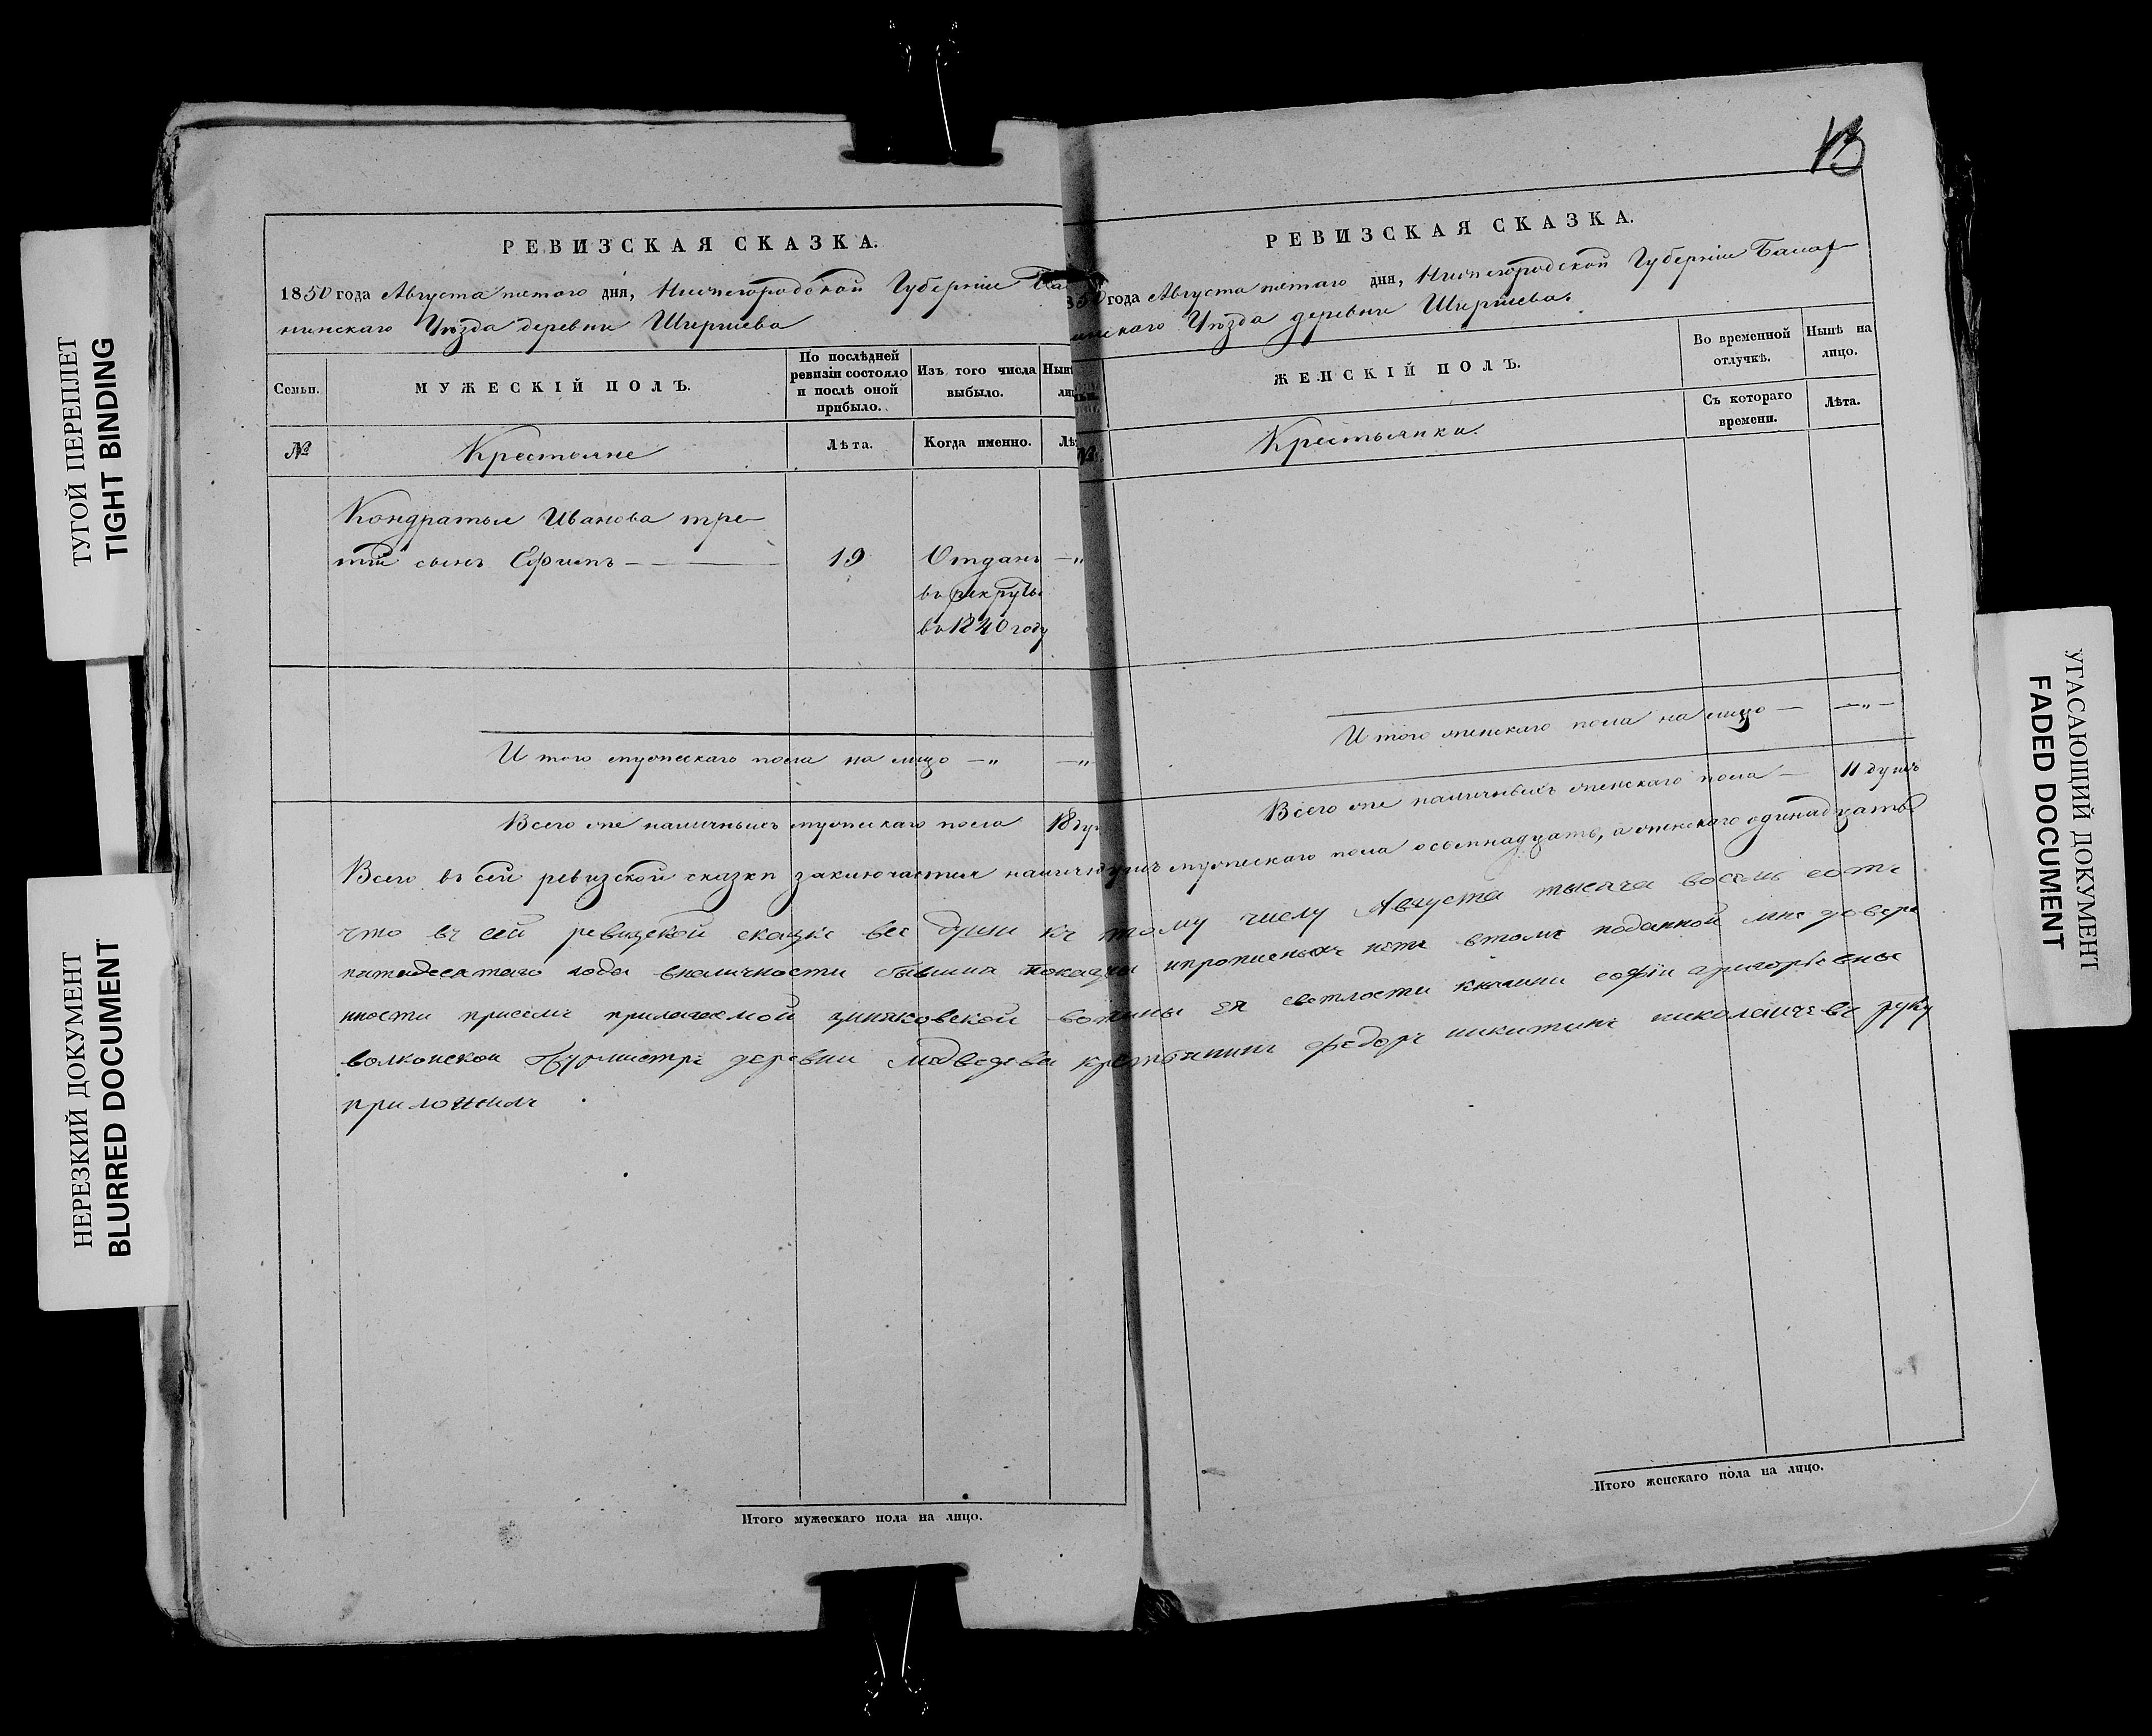 13
РЕВИЗСКАЯ СКАЗКА.
1850 года Августа пятого дня, Нижегородской Губернiи Ба
нинскаго Уѣзда деревни Ширшева
Семьи.
МУЖЕСКІЙ ПОЛЪ.
По послѣдней ревизіи состояло и послѣ оной прибыло.
Изъ того числа выбыло.
Нын
№
Крестьяне
Лѣта.
Когда именно.
Лѣ
Кондратья Иванова тре-
тiй сынъ Ефимъ
19
Отданъ
въ рекруты
въ 1840 году
Итого мужескаго пола на лицо — „
Всего же наличныхъ мужескаго пола 18 ду
РЕВИЗСКАЯ СКАЗКА.
50 года Августа пятаго дня, Нижегородской Губернiи Балах-
нинскаго Уѣзда деревни Ширшева.
ЖЕНСКІЙ ПОЛЪ.
Во временной отлучкѣ.
Нынѣ на лицо.
№
Крестьянки.
Съ котораго времени.
Лѣта.
Итого женскаго пола на лицо — — „ —
Всего же наличныхъ женскаго пола — 11 душъ
Всего въ сей ревизской сказкѣ заключается налич душъ мужескаго пола осемнадцать, а женскаго одинадцать
что въ сей ревизской сказке все души къ тому числу Августа тысяча восемь сотъ
пятадесятого года вналичности бывшиа показны ипрописныхъ нетъ втомъ поданной мне довере
нности присемъ прилагаемой зиняковской вотчины ея светлости княгини софiи григорьевны
волконской Бурмистръ деревни медведева крестьянинъ федоръ никитинъ николаичевъ руку
приложилъ
Итого мужескаго пола на лицо.
Итого женскаго пола на лицо.
ТУГОЙ ПЕРЕПЛЕТ
TIGHT BINDING
НЕРЕЗКИЙ ДОКУМЕНТ
BLURRED DOCUMENT
УГАСАЮЩИЙ ДОКУМЕНТ
FADED DOCUMENT